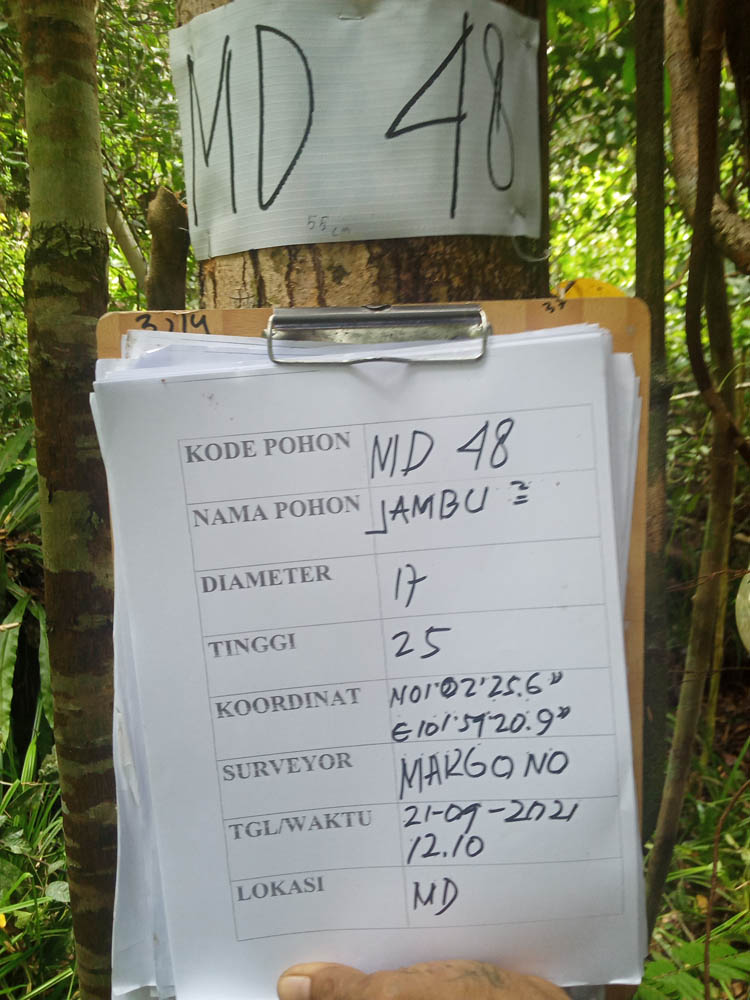 MD 48
55 cm
3214
33
KODE POHON MD 48
NAMA POHON JAMBU ²
DIAMETER 17
TINGGI 25
KOORDINAT N01°02'25.6"
E101°59'20.9"
SURVEYOR MARGONO
TGL/WAKTU 21-09-2021
12.10
LOKASI MD